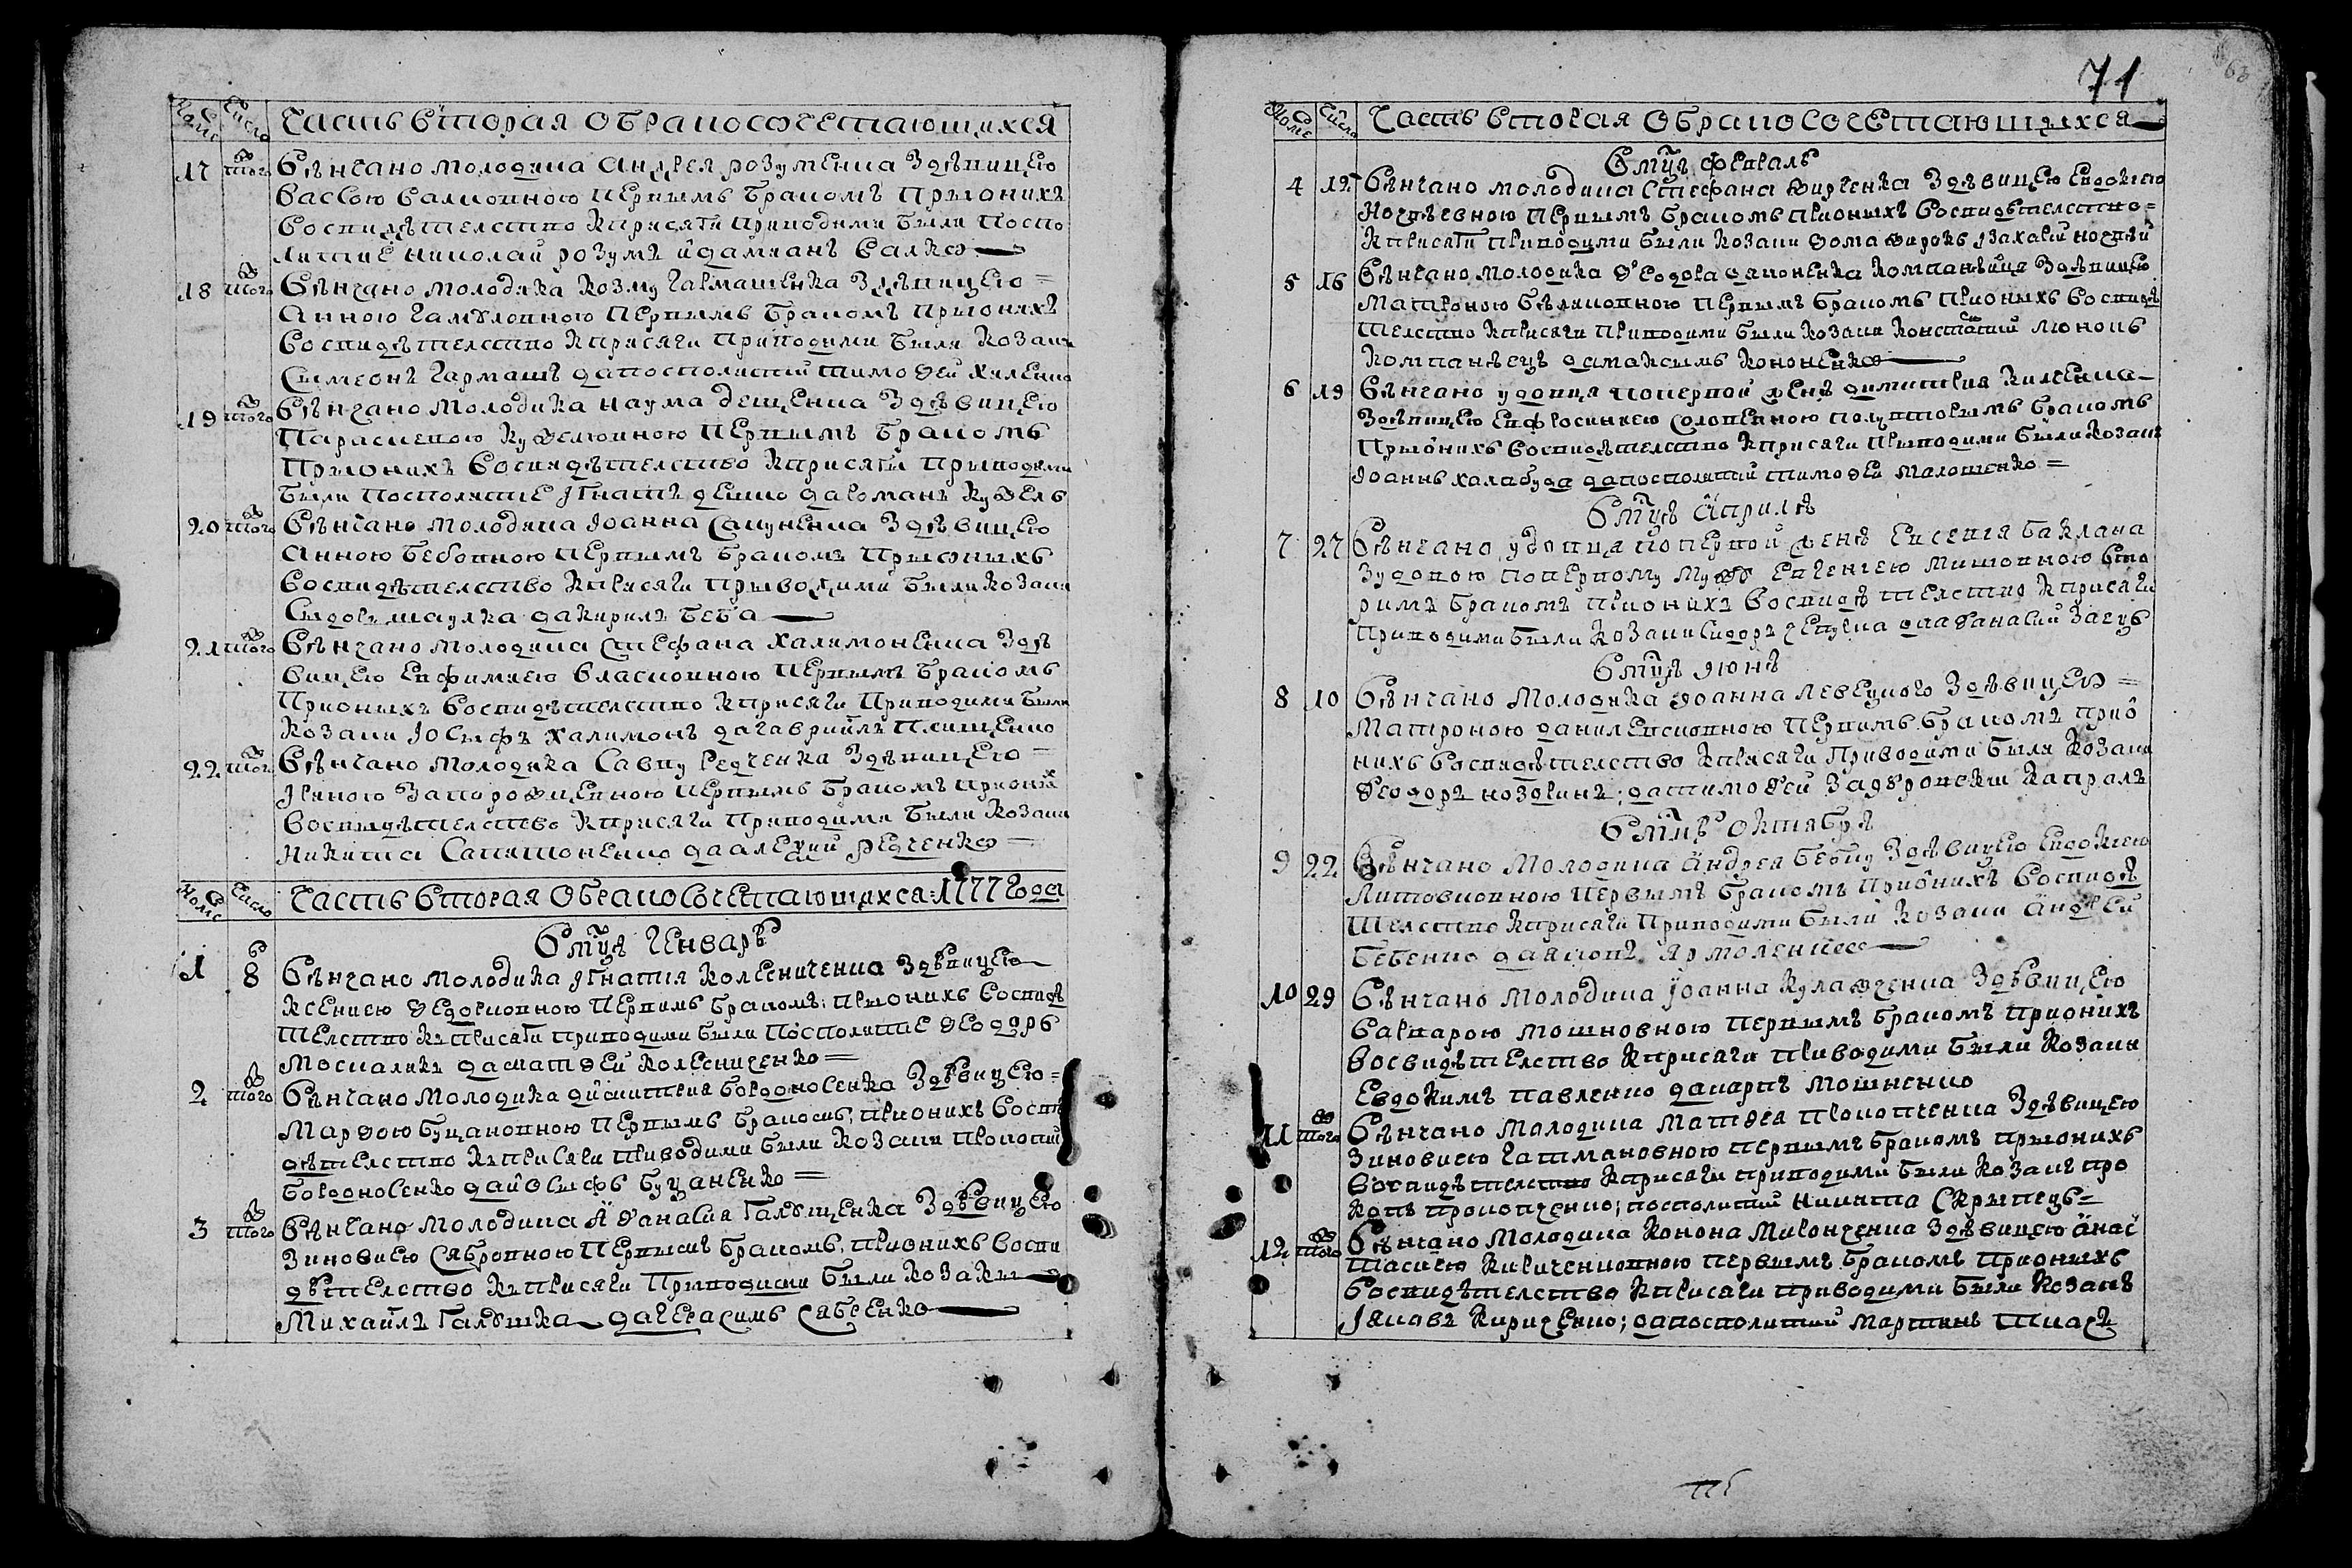 Номе Число Часть вторая о бракосочетающихся
17 того Вѣнчано молодика Андрея розуменка здѣвицею
Васкою Валковною первымъ бракомъ прыонихъ
восвидѣтелство кприсяги приводими были поспо
литие николай розумъ идамианъ Валко
18 того Вѣнчано молодика козму гармашенка здѣвицею
Анною гамʋловною первымъ бракомъ прыонихъ
восвидѣтелство кприсяги приводими были козаки
Сымеонъ гармашъ дапосполитий тимоѳей хиленко
19 того Вѣнчано молодика наума дещенка здѣвицею
Параскевою кужелювною первымъ бракомъ
прыонихъ восвидѣтелство кприсяги прыводими
были посполитие Iгнатъ дешко даромань кужель
20 того Вѣнчано молодика Iоанна Сакуненка здѣвицею
Анною бебовною первымъ бракомъ прыонихъ
восвидѣтелство кприсяги прыводими были козаки
Сыдоръ шаулка дакирилъ беба
21 того Вѣнчано молодика Стефана халимоненка здѣ
вицею Евфимиею власковною первымъ бракомъ
прионихъ восвидѣтелство кприсяги приводими были
козаки Iосыфъ халимонъ дагаврийлъ плющенко
22 того Вѣнчано молодика Савву редченка здѣвицею
Iриною запорожцевною первымъ бракомъ прионих
восвыдѣтелство кприсяги приводими были козаки
никита Сапитоненко даалеѯий редченко
Номе Число Часть вторая о бракосочетающихся: 1777 года
В мцѣ генварѣ
1 8 Вѣнчано молодика Iгнатия колесниченка здѣвицею
Ксениею ѳедорковною первимъ бракомъ: прыонихъ восвидѣ
телство къприсяги приводими были посполитие ѳеодоръ
москаликъ даматѳей колесниченко
2 того Вѣнчано молодика димитрия бородоносенка здѣвицею
марѳою буцановною первымъ бракомъ, прионихъ восви
дѣтелство къприсяги приводими были козаки прокопий
бородоносенко дайосыфъ буцаненко
3 того Вѣнчано молодика Аѳанасия Галʋщенка здѣвицею
зиновиею Сябровною первымъ бракомъ, прионихъ восви
дѣтелство къприсяги прыводими были козакы
михаилъ Галʋшка дагерасимъ Сябренко
71
63
Номе Число Часть вторая о бракосочетающихся
В мцѣ февралѣ
4 12 Вѣнчано молодика Стефана вирченка здѣвицею Евдокиею
ногдѣевною первымъ бракомъ прионихъ восвидѣтелство
кприсяги приводими были козаки ѳома вирокъ Iзахарий ногдѣй
5 16 Вѣнчано молодика ѳеодора дмоненка компанѣйця здѣвицею
матроною бѣликовною первымъ бракомъ прионыхъ восвидѣ
телство кприсяги приводими были козаки констаньтий люповъ
компанѣецъ дамаксымъ кононенко
6 19 Вѣнчано удовця поперной женѣ димитрия киленка
здѣвицею Евфросиниею Солопенною полувторымъ бракомъ
прыонихъ восвидѣтелство кприсяги прыводими были козакъ
Iоаннъ халабуда дапосполитий тимоѳей малошенко
В мцѣ Априлѣ
7 27 Вѣнчано удовця поперной женѣ Евсевия баклана
зудовою поперному мужѣ Евгениею митовною вто
римъ бракомъ прионихъ восвидѣтелство кприсяги
приводими были козаки Сидоръ чепурка дааѳанасий заецъ
В мцѣ июнѣ
8 10 Вѣнчано молодика Iоанна левецкого здѣвицею
матроною данилевсковною первимъ бракомъ прио
нихъ восвидѣтелство кприсяги приводими были козаки
ѳеодоръ нозорѣнъ; датимоѳей задѣровский капралъ
В мцѣ октябрѣ
9 22 Вѣнчано молодика Андрея бебку здѣвицею Евдокиею
литовковною первымъ бракомъ прионихъ восвидѣ
телство кприсяги приводими были козаки Андрей
бебенко даяковъ Ярмоленко
10 29 Вѣнчано молодика Iоанна кулажченка здѣвицею
варварою мошновною первымъ бракомъ прионихъ
восвидѣтелство кприсяги приводими были козаки
Евдокимъ павленко дакарпъ мошненко
11 того Вѣнчано молодика матѳея прокопченка здѣвицею
зиновиею гатмановною первымъ бракомъ прыонихъ
восвидѣтелство кприсяги приводими были козакъ про
копъ прокопченко; посполитий никита Скрыпецъ
12 того Вѣнчано молодика конона миронченка здѣвицею Анас
тасиею кириченковною первымъ бракомъ прионихъ
восвидѣтелство кприсяги приводими были козакъ
Iяковъ кириченко; дапосполитий мартинъ ткачъ